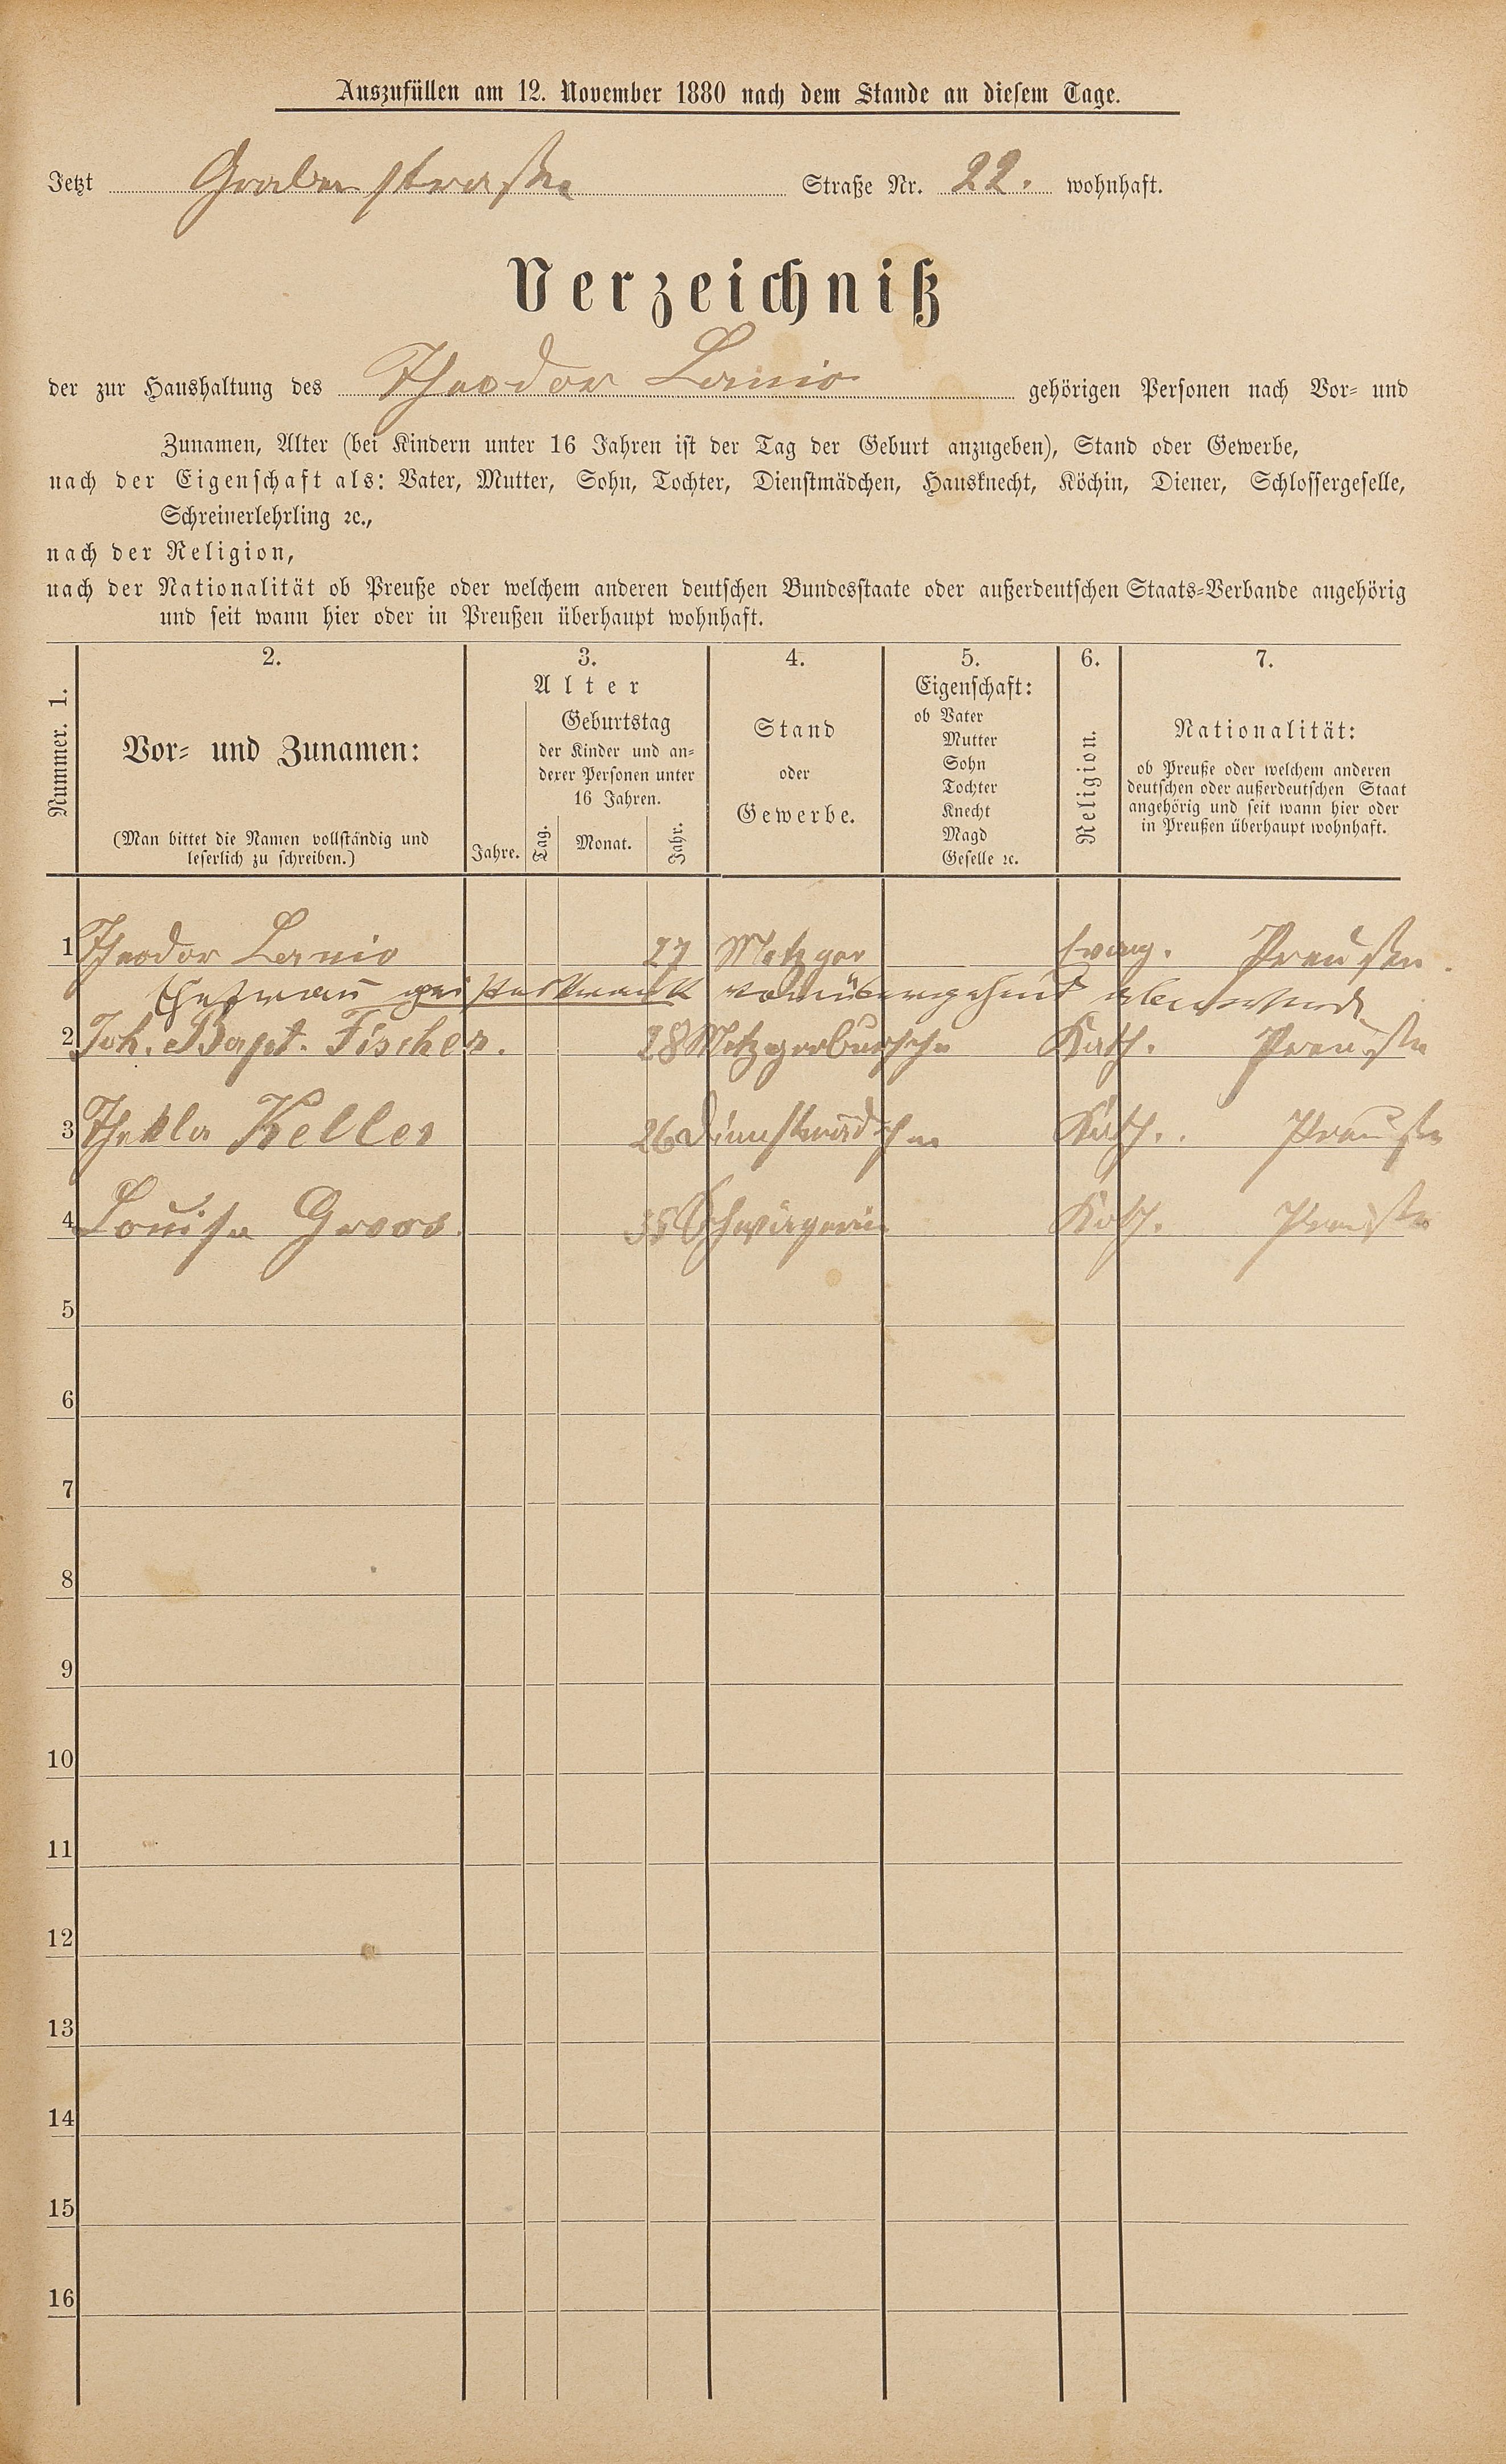 Auszufüllen am 12. November 1880 nach dem Stande an diesem Tage.
Jetzt Grabenstraße Straße Nr. 22. wohnhaft.
Verzeichniß
der zur Haushaltung des Theodor Lanio gehörigen Personen nach Vor- und
Zunamen, Alter (bei Kindern unter 16 Jahren ist der Tag der Geburt anzugeben), Stand oder Gewerbe,
nach der Eigenschaft als: Vater, Mutter, Sohn, Tochter, Dienstmädchen, Hausknecht, Köchin, Diener, Schlossergeselle,
Schreinerlehrling ꝛc.,
nach der Religion,
nach der Nationalität ob Preuße oder welchem anderen deutschen Bundesstaate oder außerdeutschen Staats-Verbande angehörig
und seit wann hier oder in Preußen überhaupt wohnhaft.
Nummer. 1.
2.
Vor- und Zunamen:
(Man bittet die Namen vollständig und
leserlich zu schreiben.)
3.
Alter
Jahre.
Geburtstag
der Kinder und an-
derer Personen unter
16 Jahren.
Tag. Monat. Jahr.
4.
Stand
oder
Gewerbe.
5.
Eigenschaft:
ob Vater
Mutter
Sohn
Tochter
Knecht
Magd
Geselle ꝛc.
6.
Religion.
7.
Nationalität:
ob Preuße oder welchem anderen
deutschen oder außerdeutschen Staat
angehörig und seit wann hier oder
in Preußen überhaupt wohnhaft.
1 Theodor Lanio 27 Metzger Evang. Preußen.
Ehefrau geisteskrank vorübergehend abwesend
2 Joh. Bapt. Fischer. 28 Metzgerbursche Kath. Preuße
3 Thekla Keller 26 Dienstmädchen Kath. Preuße
4 Louise Groos. 35 Schwägerin Kath. Preuße
5
6
7
8
9
10
11
12
13
14
15
16